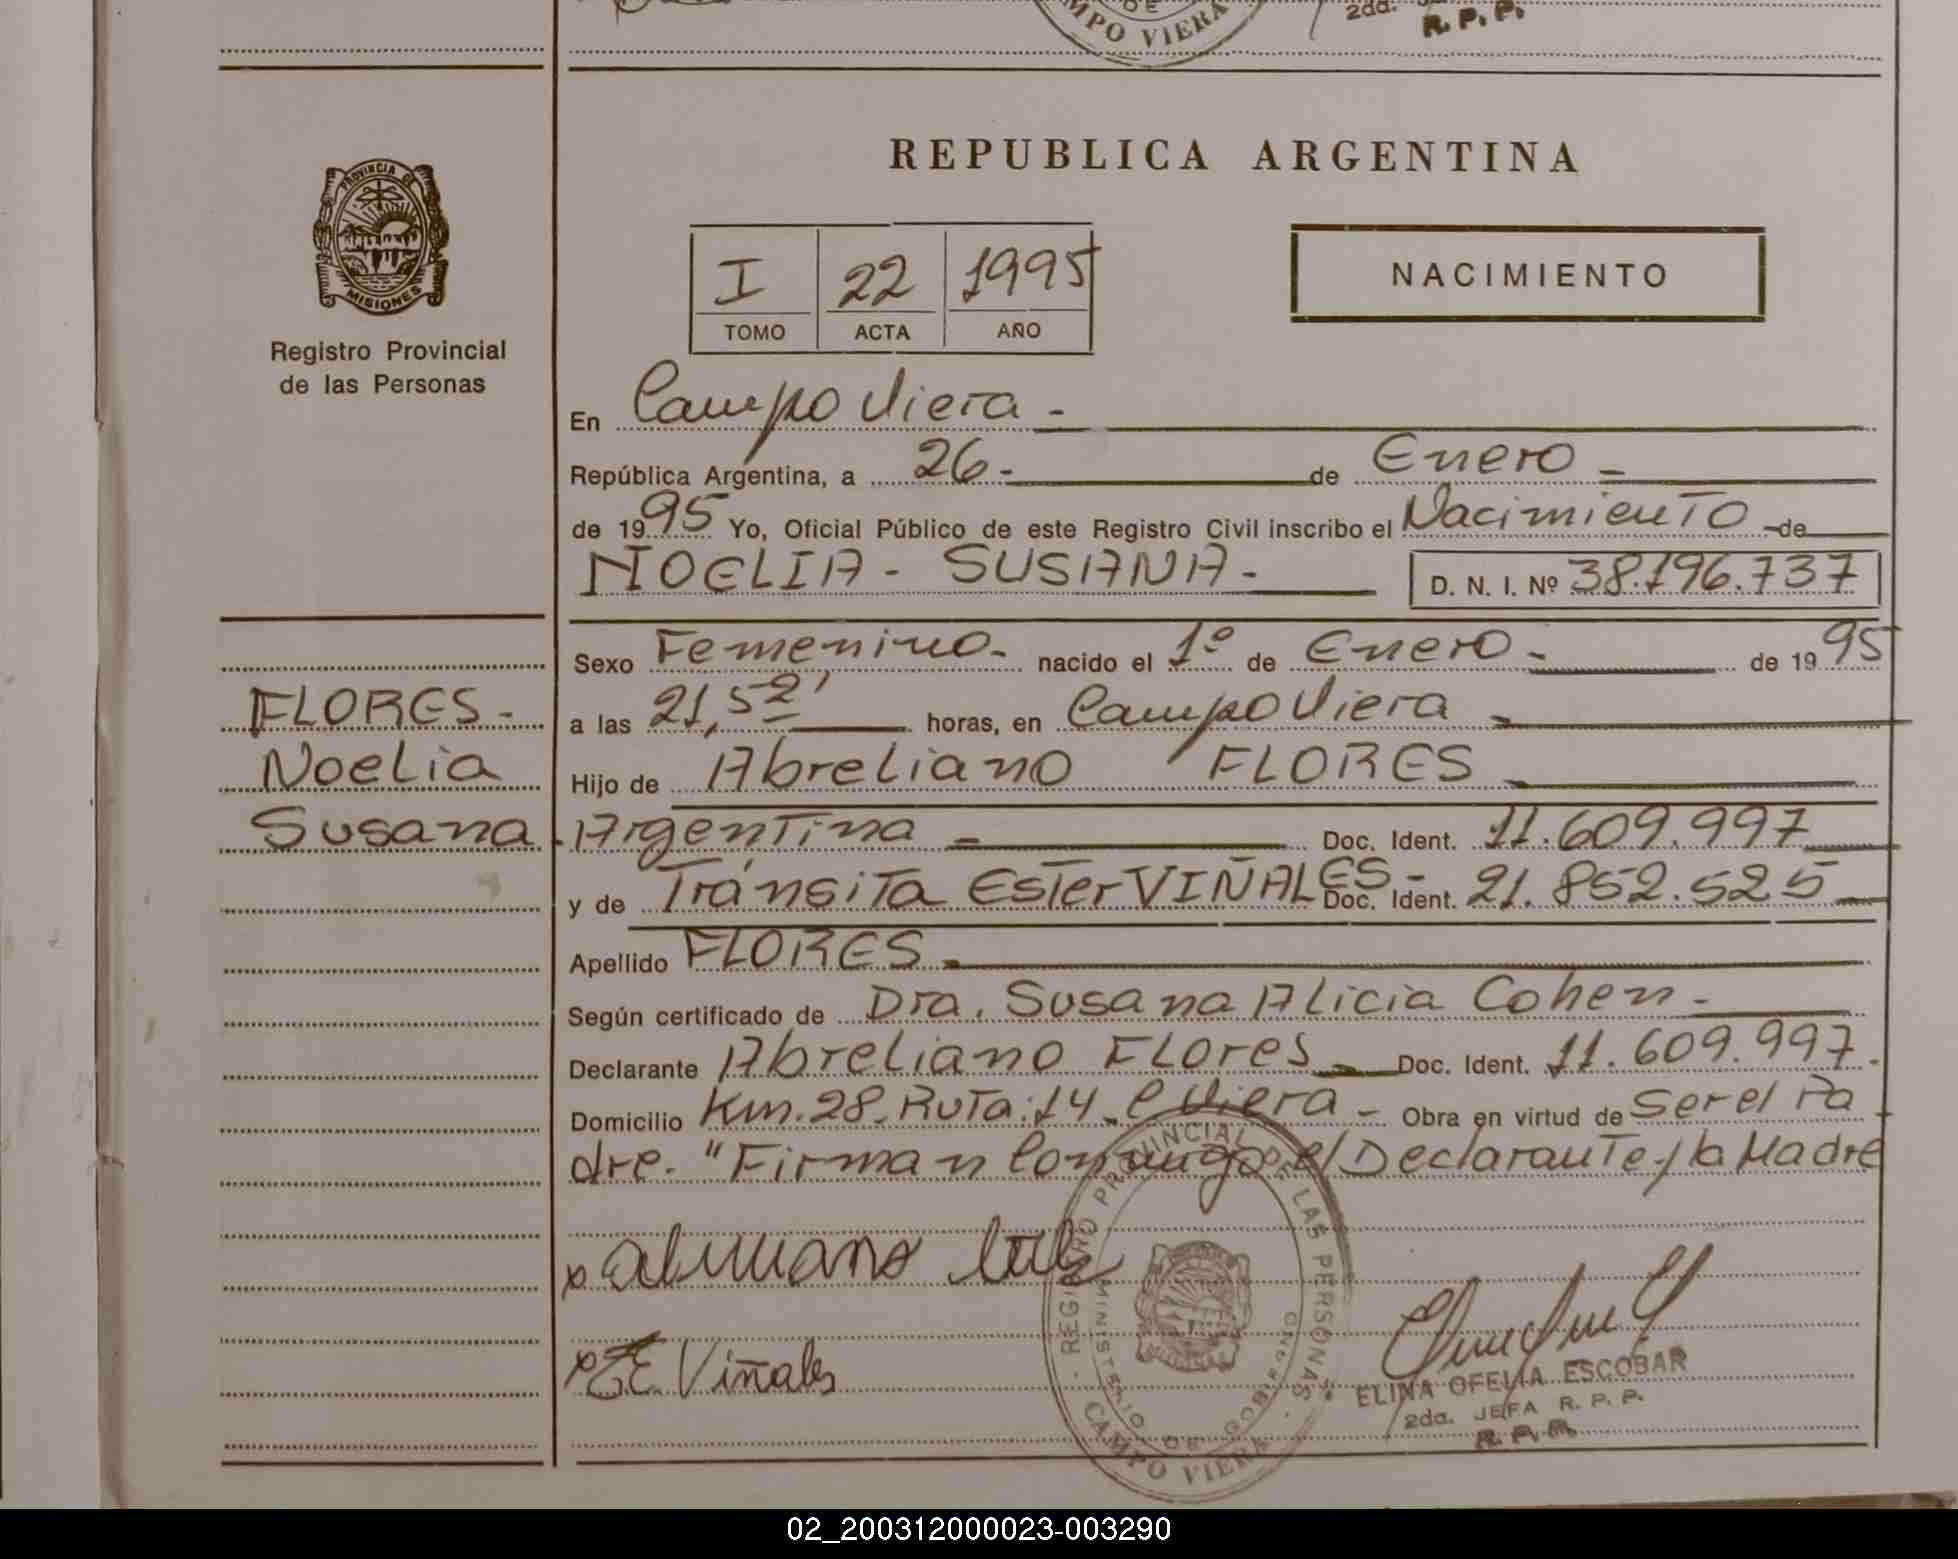 2da.
R. P. P.
CAMPO VIERA
REPUBLICA ARGENTINA
PROVINCIA DE
MISIONES
Registro Provincial
de las Personas
I 22 1995
TOMO ACTA AÑO
NACIMIENTO
En Campo Viera -
República Argentina, a 26 - de Enero -
de 1995 Yo, Oficial Público de este Registro Civil inscribo el Nacimiento - de
NOELIA - SUSANA - D. N. I. Nº 38.196.737
Sexo Femenino - nacido el 1º de Enero - de 1995
FLORES -
Noelia
Susana
a las 21,52' horas, en Campo Viera -
Hijo de Abreliano FLORES -
Argentina - Doc. Ident. 11.609.997
y de Tránsita Ester VIÑALES - Doc. Ident. 21.852.525
Apellido FLORES -
Según certificado de Dra. Susana Alicia Cohen -
Declarante Abreliano Flores - Doc. Ident. 11.609.997.
Domicilio Km. 28. Ruta: 14 - C Viera - Obra en virtud de ser el Pa
dre. "Firman Conmigo el Declarante y la Madre
REGISTRO PROVINCIAL DE LAS PERSONAS
MINISTERIO DE GOBIERNO
CAMPO VIERA
x E. Viñales
ELINA OFELIA ESCOBAR
2da. JEFA R. P. P.
R. P. P.
02_200312000023-003290